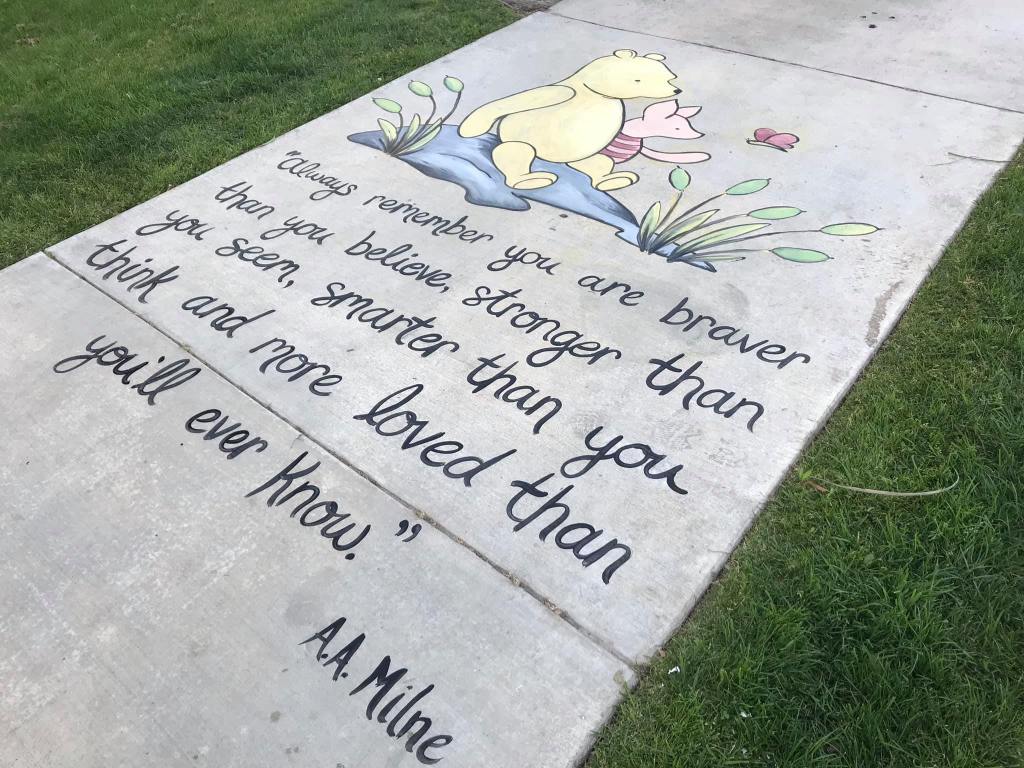 "always remember you are braver
than you believe, stronger than
you seem, smarter than you
think and more loved than
you'll ever Know."
A.A. Milne